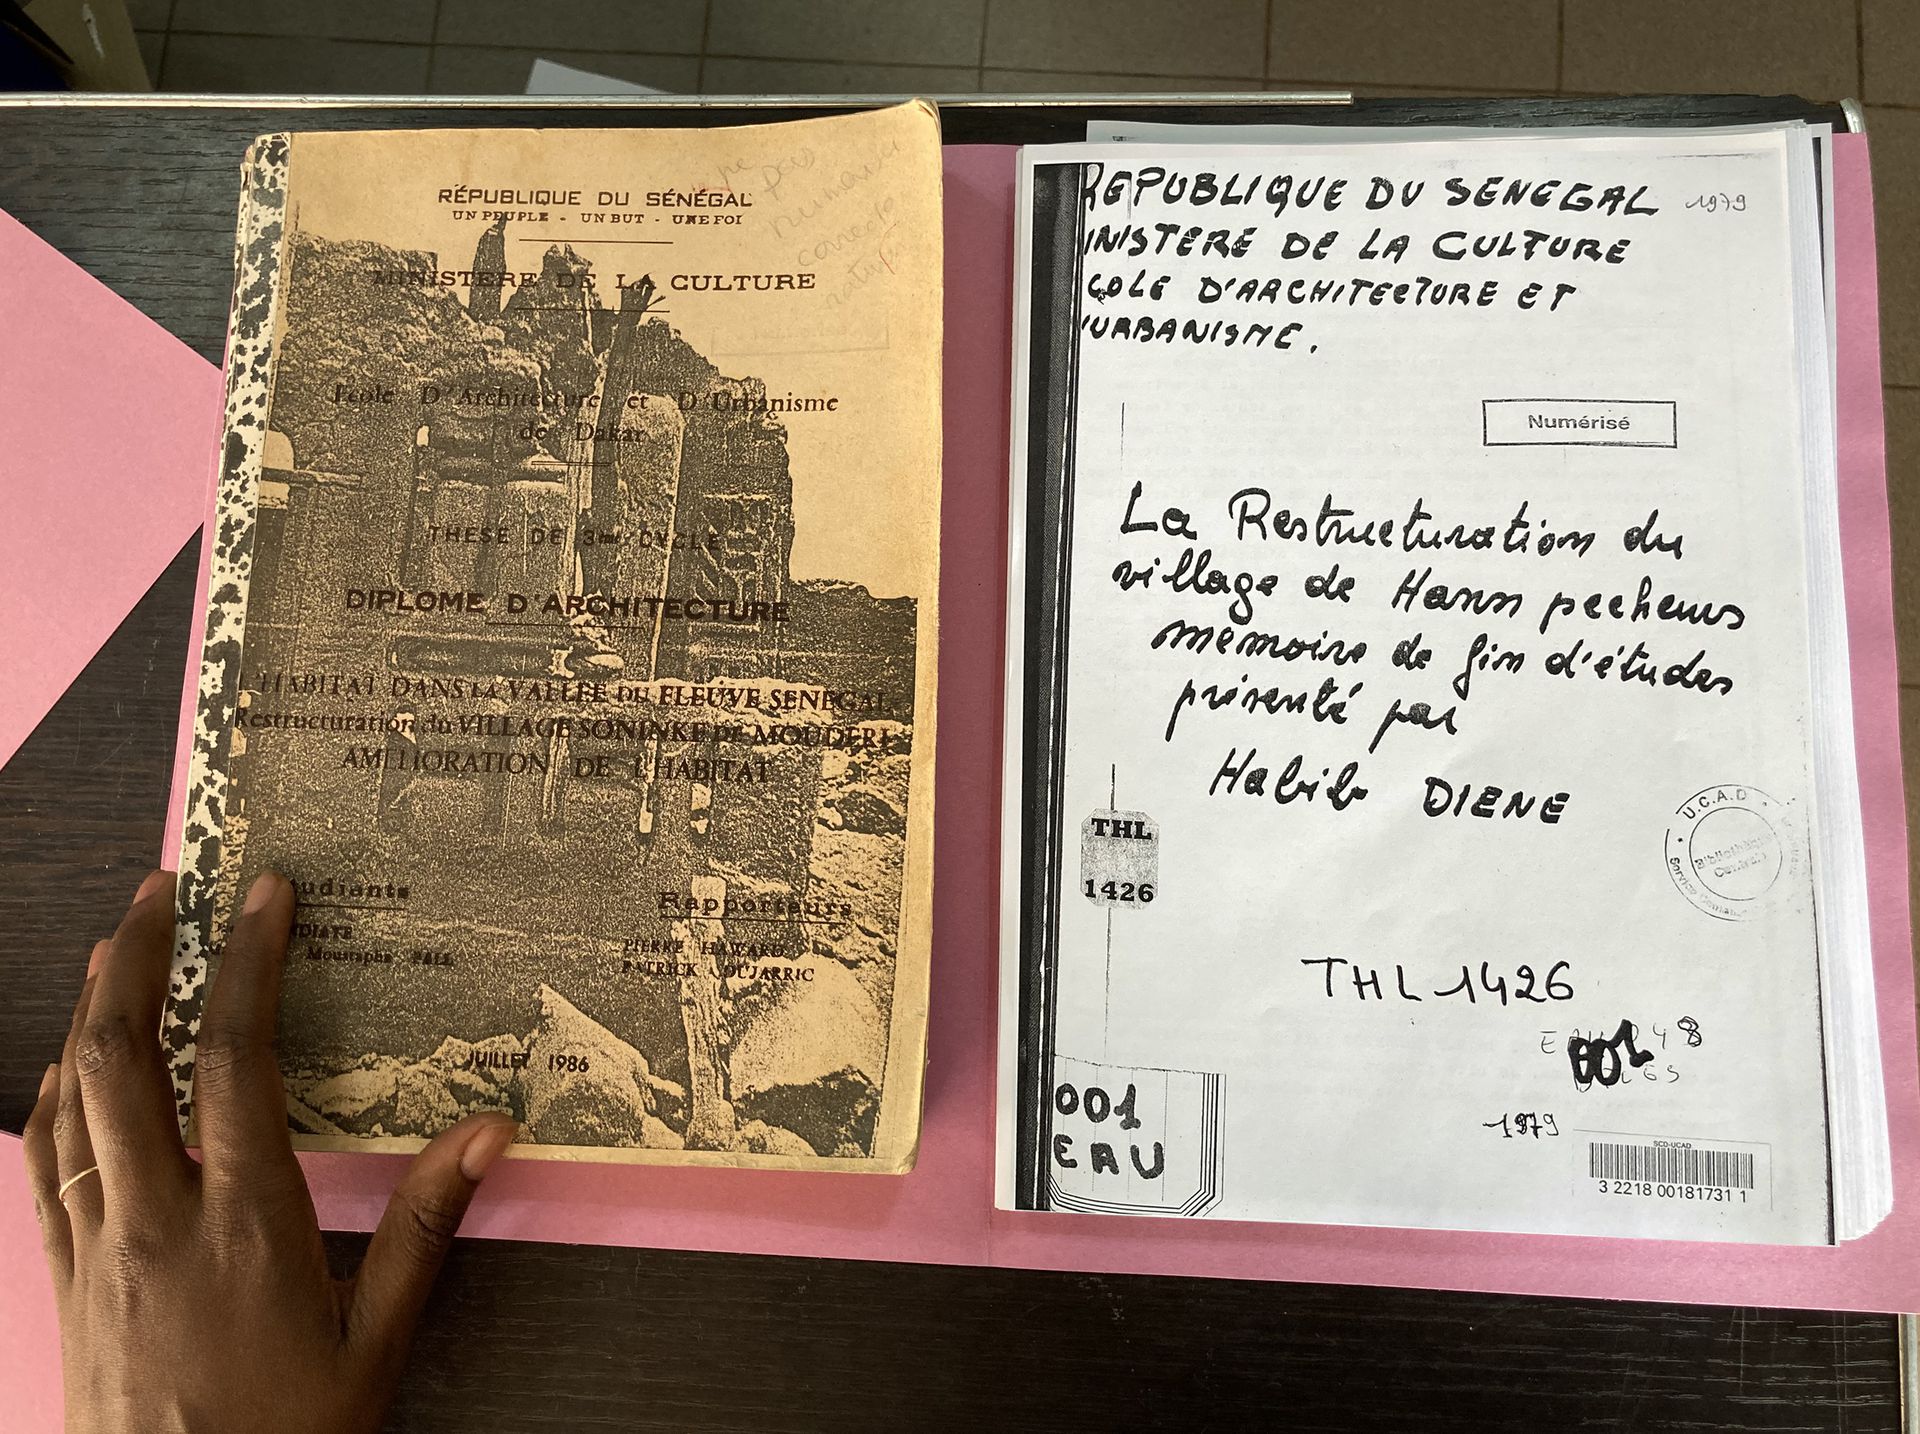 RÉPUBLIQUE DU SÉNÉGAL
UN PEUPLE - UN BUT - UNE FOI
MINISTERE DE LA CULTURE
Ecole D'Architecture et D'Urbanisme
de Dakar
THESE DE 3me CYCLE
DIPLOME D'ARCHITECTURE
L'HABITAT DANS LA VALLEE DU FLEUVE SENEGAL
Restructuration du VILLAGE SONINKE DE MOUDERI
AMELIORATION DE L'HABITAT
udiants
Moustapha FALL
Rapporteurs
PIERRE HAWARD
PATRICK DUJARRIC
JUILLET 1986
REPUBLIQUE DU SENEGAL 1979
INISTERE DE LA CULTURE
COLE D'ARCHITECTURE ET
'URBANISME.
Numérisé
La Restructuration du
village de Hann pecheurs
memoire de fin d'études
présenté par
Habib DIENE
U.C.A.D
Bibliothèque
THL
1426
THL 1426
001
1979
001
EAU
SCD-UCAD
3 2218 00181731 1